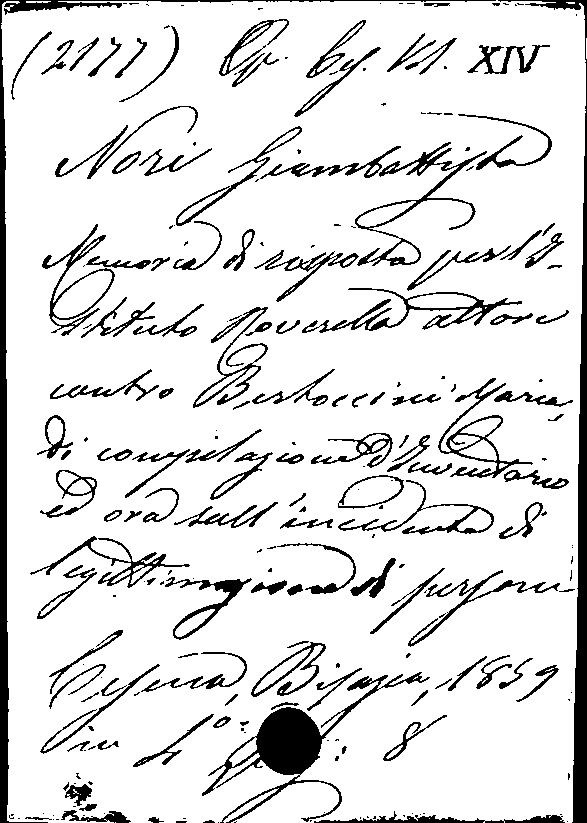 (2177) Op. Ces. Vol. XIV
Nori Giambattista
Memoria di risposta per l'I-
stituto Roverella attore
contro Bertoccini Maria,
di compilazione d'Inventario
ed ora sull'incidente di
legittimazione di persone
Cesena, Bisazia, 1859
in 4º: : 8